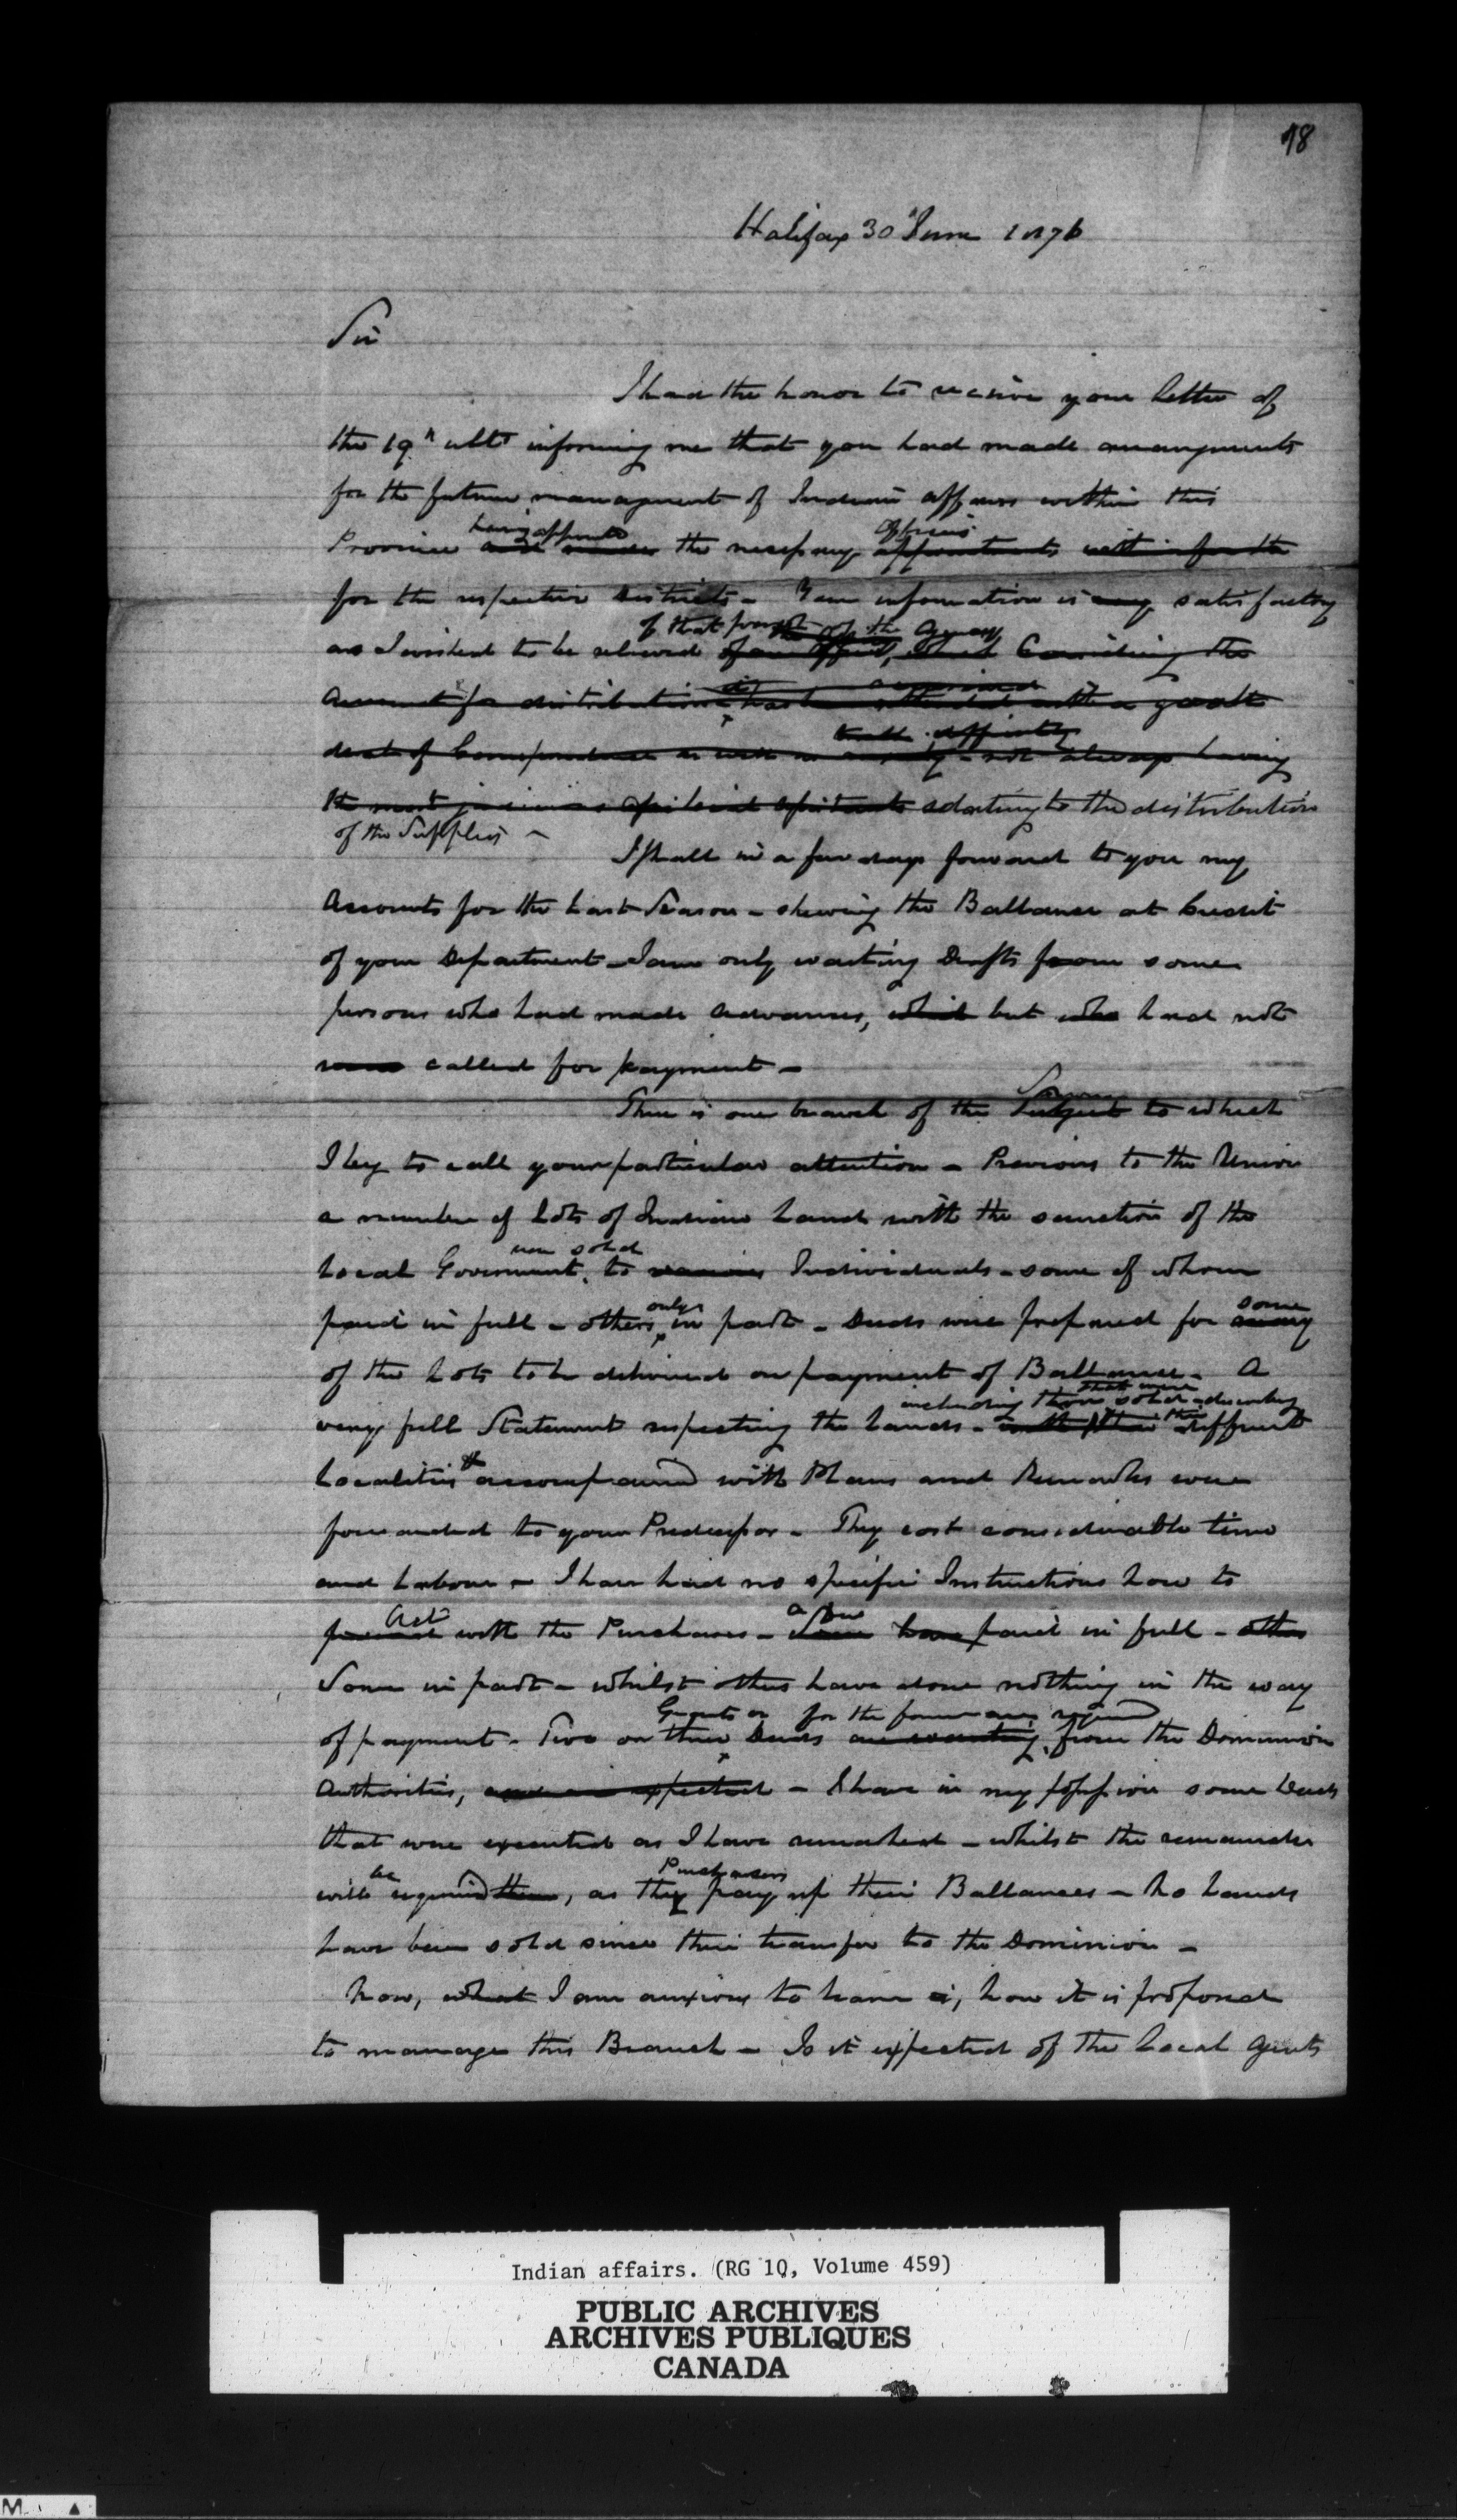 18
Halifax 30th June 1876
Sir
I had the honor to receive your letter of
the 19th ulto informing me that you had made arrangments
for the future managment of Indian affairs within this
having appointed officers
Province the necessary appointments
for the respective Districts - Your information is satisfactory
of that part of the Agency
as I wished to be relieved Considering the
difficulty
not always having
relating to the distribution
of the Supplies -
I shall in a few days forward to you my
Accounts for the Last Season - shewing the Ballance at Credit
of your Department - I am only waiting Drafts from some
persons who had made advances, which but who had not
called for payment -
There is one branch of the Subject to which
I beg to call your particular attention - Previous to the Union
a number of Lots of Indian Lands with the sanction of the
were sold
Local Government, to various Individuals - some of whom
only some
paid in full - others in part - Deeds were prepared for many
of the Lots to be delivered on payment of Ballance - A
including those that were sold describing
very full Statement respecting the Lands - the different
Localities & accompanied with Plans and Remarks were
forwarded to your Predecessor - They cost considerable time
and Labour - I have had no specific Instructions how to
Act a few
proceed with the Purchasers - Some have paid in full - others
Some in part - whilst others have done nothing in the way
Grants or for the former are required
of payment - Two or three Deeds are wanting from the Dominion
Authorities, expected - I have in my possession some Deeds
that were executed as I have remarked - whilst the remainder
be Purchasers
will required them, as they pay up their Ballances - No Lands
have been sold since their transfer to the Dominion -
Now, what I am anxious to learn is, how it is proposed
to manage this Branch - Is it expected of the Local Agents
Indian affairs. (RG 10, Volume 459)
PUBLIC ARCHIVES
ARCHIVES PUBLIQUES
CANADA
M